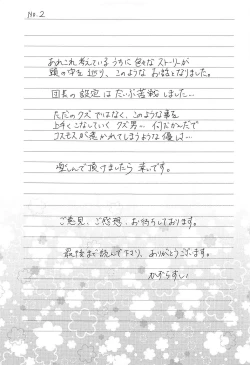 No.2
あれこれ考えているうちに色々なストーリーが
頭の中を巡り、このようなお話となりました。
団長の設定はだいぶ苦戦しました…
ただのクズではなく、このような事を
上手くこなしていくクズ男… 何だかんだで
コスモスが惹かれてしまうような優は…
楽しんで頂けましたら幸いです。
ご意見、ご感想、お待ちしております。
最後まで読んで下さり、ありがとうございます。
かずらすい